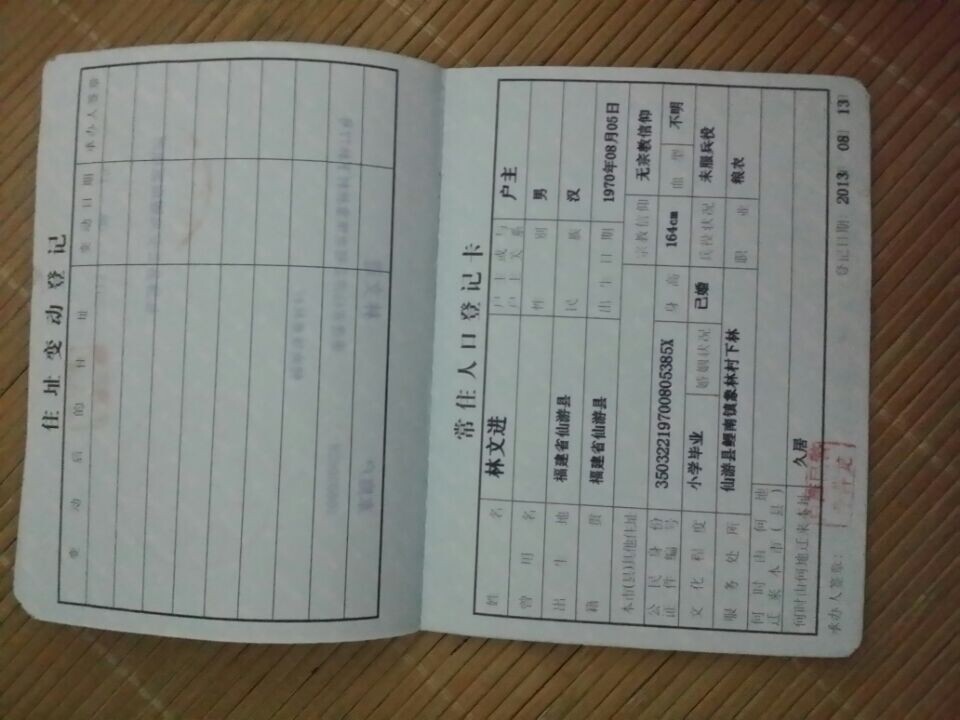 住址变动登记
变动后的住址 变动日期 承办人签章
常住人口登记卡
姓名 林文进 户主或与户主关系 户主
曾用名 性别 男
出生地 福建省仙游县 民族 汉
籍贯 福建省仙游县 出生日期 1970年08月05日
本市(县)其他住址 宗教信仰 无宗教信仰
公民身份证件编号 35032219700805385X 身高 164cm 血型 不明
文化程度 小学毕业 婚姻状况 已婚 兵役状况 未服兵役
服务处所 仙游县鲤南镇象林村下林 职业 粮农
何时由何地迁来本市(县)
何时由何地迁来本址 久居
承办人签章: 登记日期: 2013 08 13